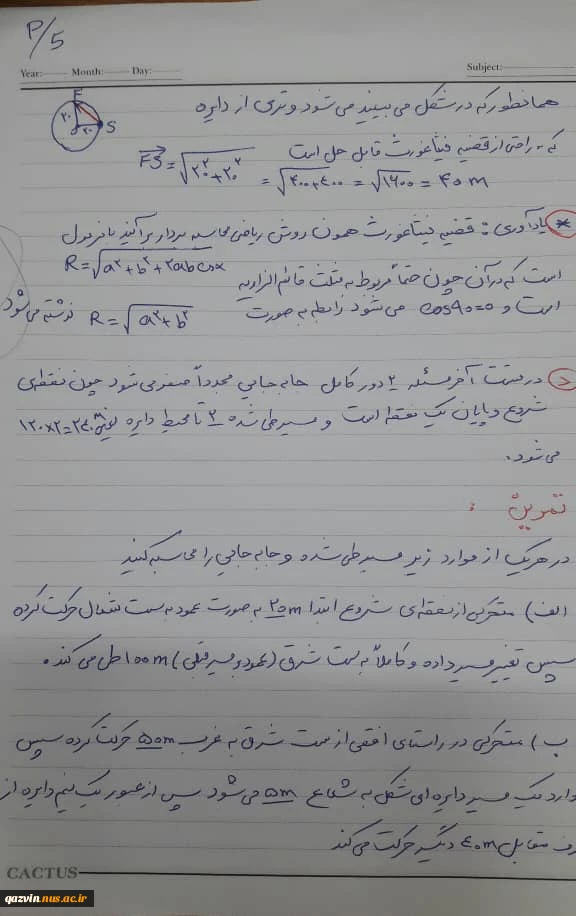 P/5
Year: Month: Day: Subject:
همانطور که در شکل می بینید می شود وتری از دایره
F
۲۰
۲۰ S
که براحتی از قضیه فیثاغورث قابل حل است
FS = √۲۰²+۲۰² = √۴۰۰+۴۰۰ = √۱۶۰۰ = ۴۰ m
* یادآوری: قضیه فیثاغورث همون روش ریاضی محاسبه بردار برآیند با فرمول
R = √a²+b²+۲ab cosα
است که در آن چون حتماً مربوط به مثلث قائم الزاویه
است و cos۹۰=۰ می شود رابطه به صورت R = √a²+b² نوشته می شود
د) در قسمت آخر مسئله ۲ دور کامل جابه جایی مجدداً صفر می شود چون نقطه ی
شروع و پایان یک نقطه است و مسیر طی شده ۲ تا محیط دایره یعنی ۱۲۰×۲=۲۴۰m
می شود.
تمرین:
در هریک از موارد زیر مسیر طی شده و جابه جایی را محاسبه کنید
الف) متحرکی از نقطه ی شروع ابتدا ۲۵m به صورت عمود به سمت شمال حرکت کرده
سپس تغییر مسیر داده و کاملاً به سمت شرق (عمود بر مسیر قبلی) ۱۰۰m طی می کند.
ب) متحرکی در راستای افقی از سمت شرق به غرب ۵۰m حرکت کرده سپس
وارد یک مسیر دایره ای شکل به شعاع ۵m می شود پس از عبور یک نیم دایره از
مقابل ۴۰m دیگر حرکت می کند
CACTUS
qazvin.nus.ac.ir